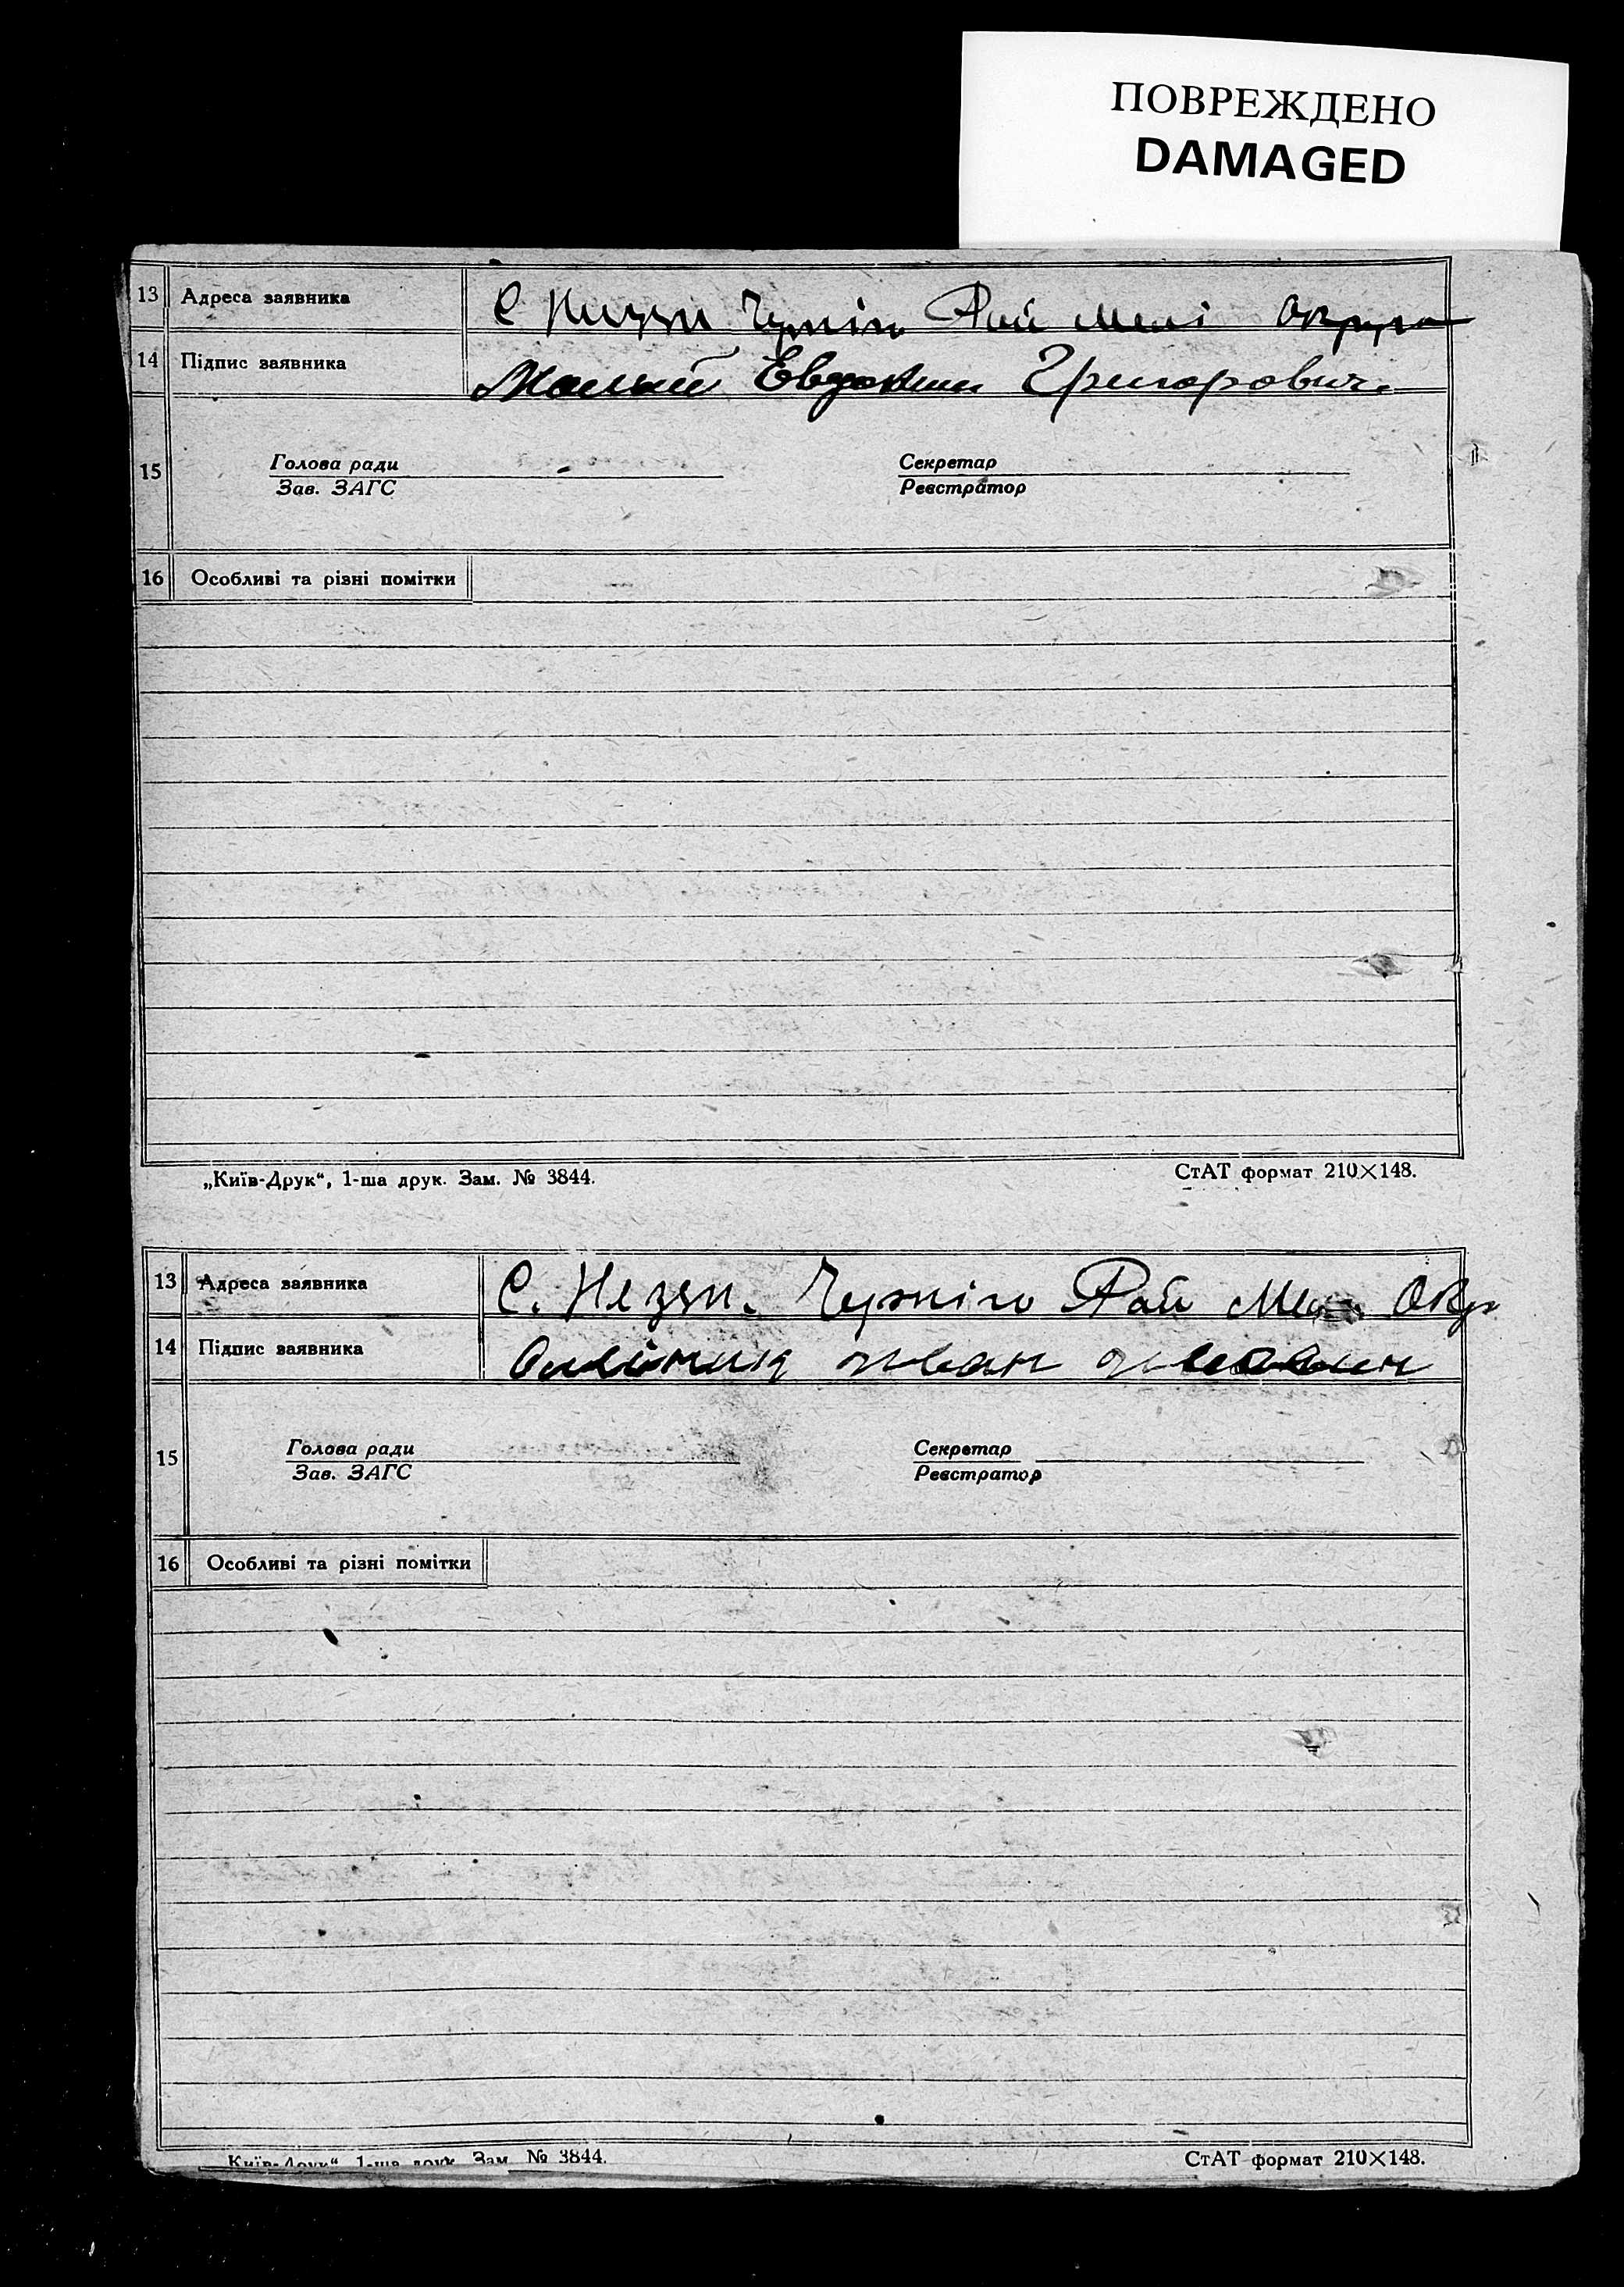 ПОВРЕЖДЕНО
DAMAGED
13 Адреса заявника С Низян Чернігів Рай Мелі Округа
14 Підпис заявника Малый Евдоким Григорович.
15 Голова ради Секретар
Зав. ЗАГС Реєстратор
16 Особливі та різні помітки
„Київ-Друк“, 1-ша друк. Зам. № 3844. СтАТ формат 210×148.
13 Адреса заявника С. Рай Окр
14 Підпис заявника Олійник
15 Голова ради Секретар
Зав. ЗАГС Реєстратор
16 Особливі та різні помітки
Київ-Друк“ 1-ша друк. Зам. № 3844. СтАТ формат 210×148.